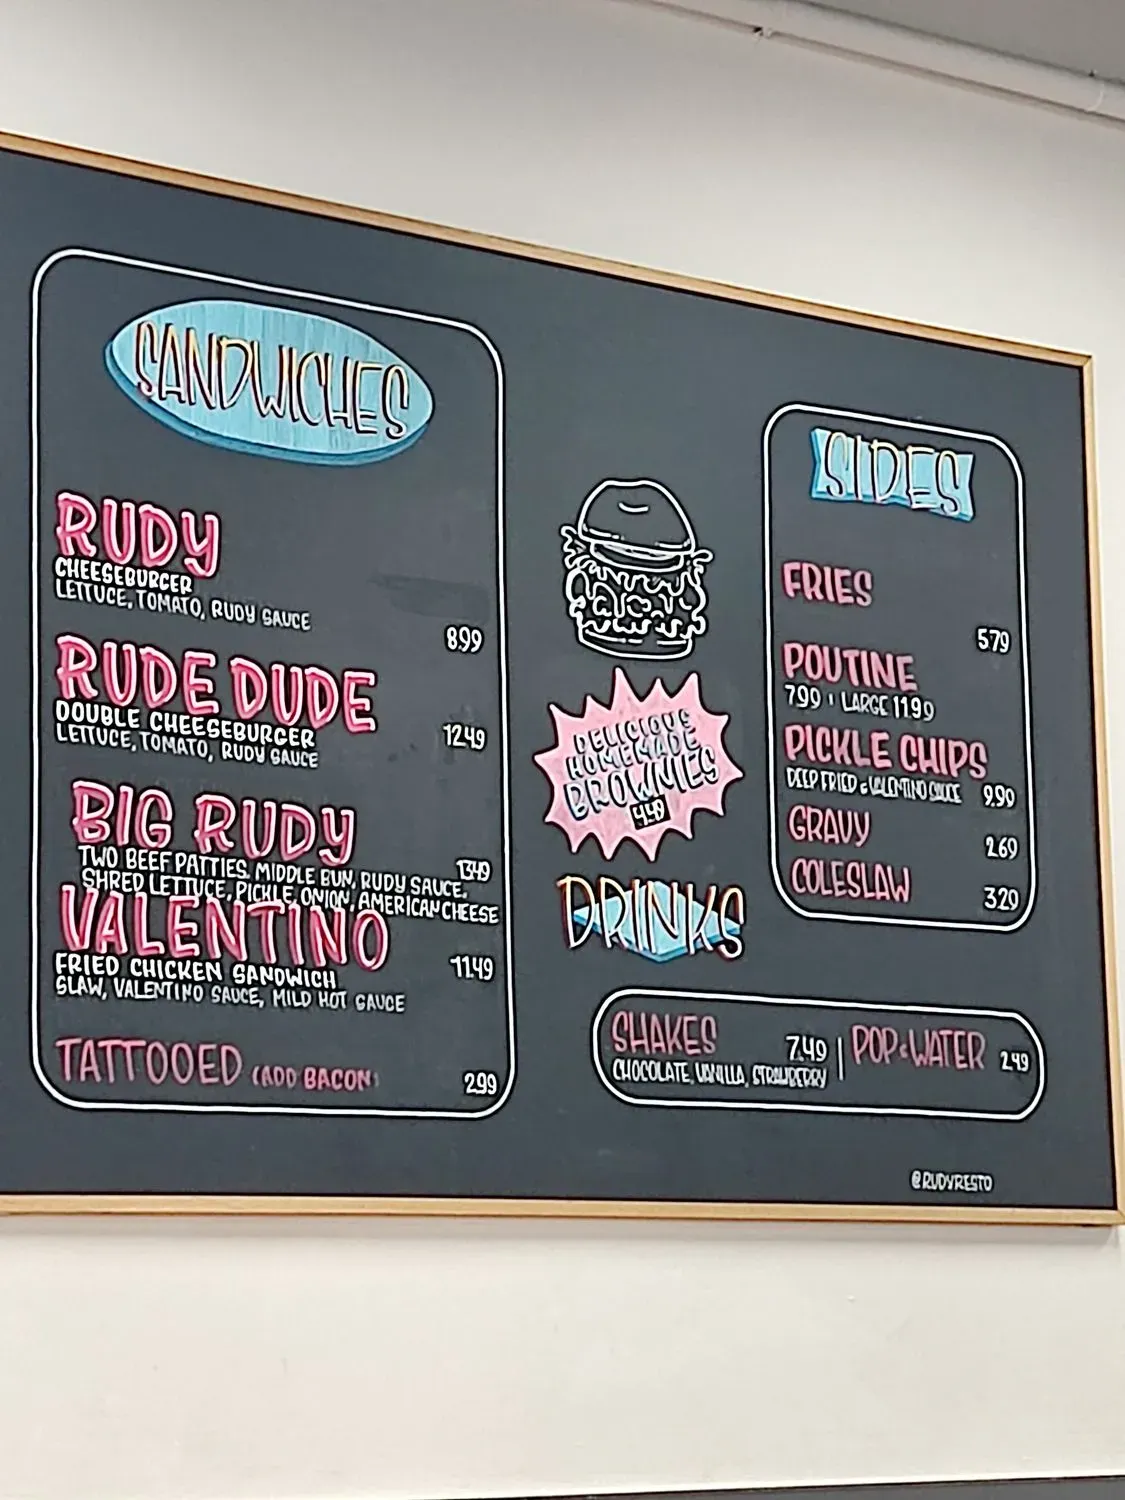 SANDWICHES
RUDY
CHEESEBURGER
LETTUCE, TOMATO, RUDY SAUCE
8.99
RUDE DUDE
DOUBLE CHEESEBURGER 12.49
LETTUCE, TOMATO, RUDY SAUCE
BIG RUDY
TWO BEEF PATTIES, MIDDLE BUN, RUDY SAUCE, 13.49
SHRED LETTUCE, PICKLE, ONION, AMERICAN CHEESE
VALENTINO
FRIED CHICKEN SANDWICH 11.49
SLAW, VALENTINO SAUCE, MILD HOT SAUCE
TATTOOED (ADD BACON) 2.99
DELICIOUS
HOMEMADE
BROWNIES
4.49
SIDES
FRIES
5.79
POUTINE
7.99 | LARGE 11.99
PICKLE CHIPS
DEEP FRIED & VALENTINO SAUCE 9.99
GRAVY
2.69
COLESLAW
3.29
DRINKS
SHAKES 7.49 | POP & WATER 2.49
CHOCOLATE, VANILLA, STRAWBERRY
@RUDYRESTO